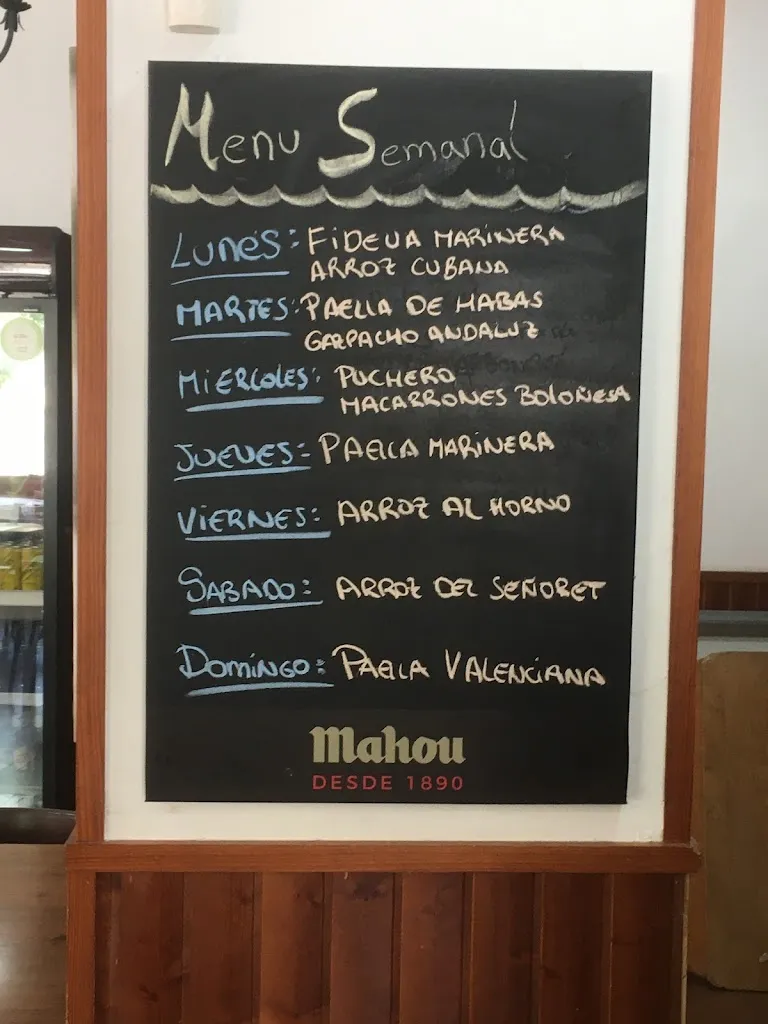 Menu Semanal
LUNES: FIDEUA MARINERA
ARROZ CUBANA
MARTES: PAELLA DE HABAS
GAZPACHO ANDALUZ
MIERCOLES: PUCHERO
MACARRONES BOLOÑESA
JUEVES: PAELLA MARINERA
VIERNES: ARROZ AL HORNO
SABADO: ARROZ DEL SEÑORET
DOMINGO: PAELLA VALENCIANA
Mahou
DESDE 1890